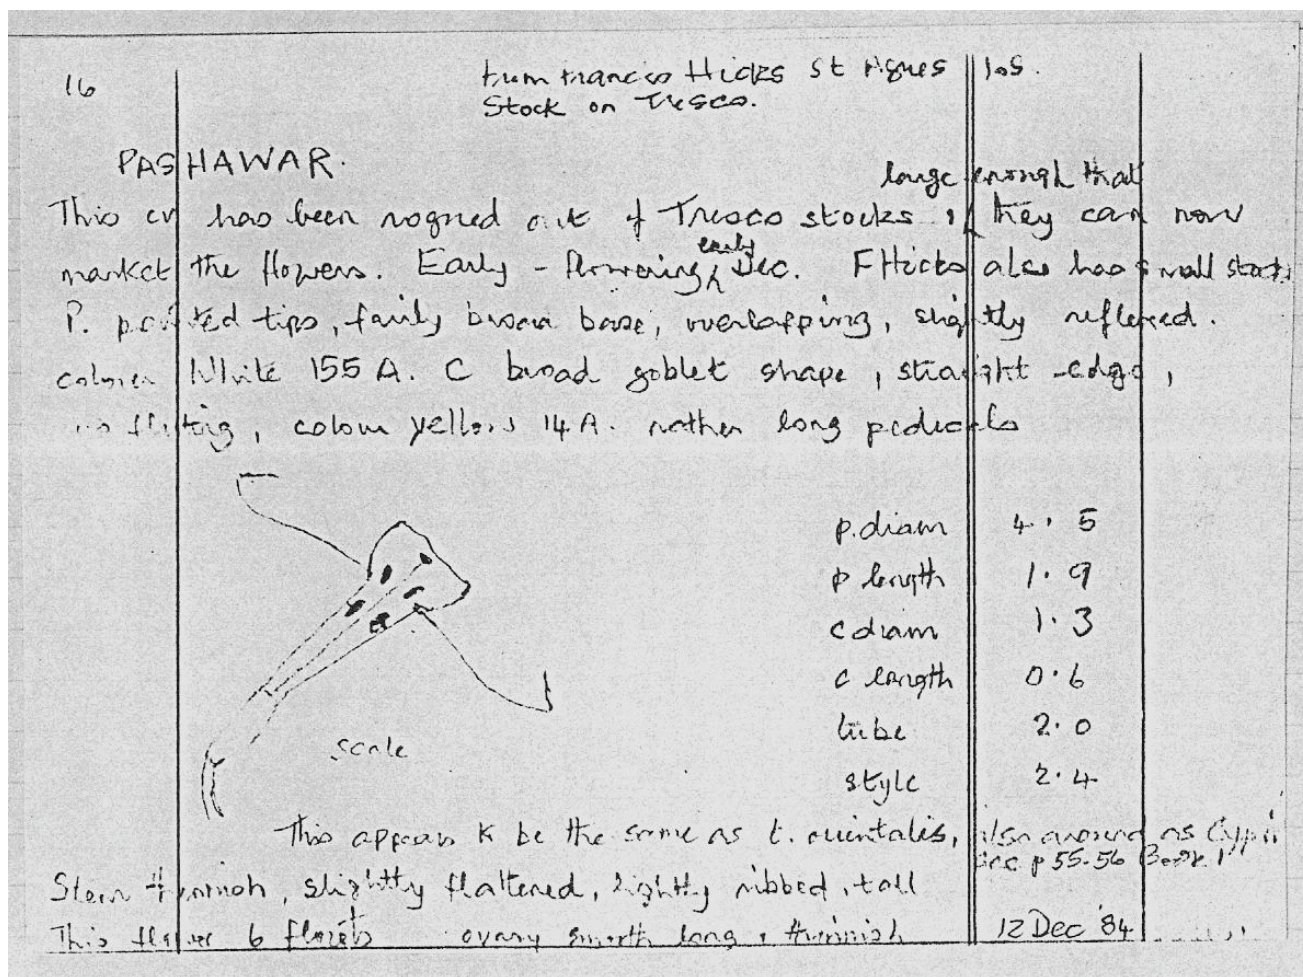 16
from Francis Hicks St Agnes IoS.
Stock on Tresco.
PASHAWAR.
large enough that
This cv has been rogued out of Tresco stocks, they can now
early
market the flowers. Early - flowering Dec. F Hicks also has small stock
P. pointed tips, fairly broad base, overlapping, slightly reflexed.
colour White 155 A. C broad goblet shape, straight -edge,
no fluting, colour yellow 14 A. rather long pedicels
p.diam 4.5
p length 1.9
c diam 1.3
c length 0.6
tube 2.0
style 2.4
scale
This appears to be the same as t. orientalis, also around as
see p 55-56 Book 1
Stem thinnish, slightly flattened, lightly ribbed, tall
This flower 6 florets ovary smooth long, thinnish 12 Dec '84